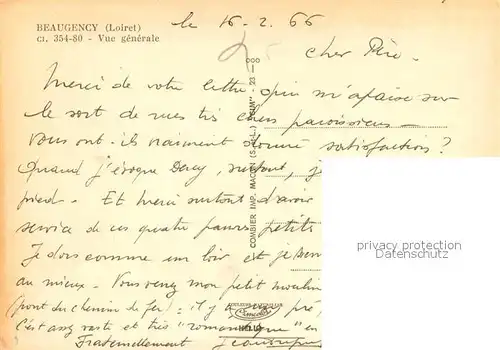 BEAUGENCY (Loiret)
Cl. 354-80 - Vue générale
le 16-2.66
Cher Père.
Merci de votre lettre qui m'apaise sur
le sort de mes très chers paroissiens –
vous ont-ils vraiment donné satisfaction ?
Quand j'évoque Dercy, surtout, j
pied. Et merci surtout d'avoir
service de ces quatre pauvres petits
Je dors comme un loir et je sen
au mieux. Vous venez mon petit moulin
(pont du chemin de fer) : il y a
C'est assez vaste et très "romantique" en
Fraternellement
COMBIER IMP. MACON (S.-&-L.) "CIM" 23
privacy protection
Datenschutz